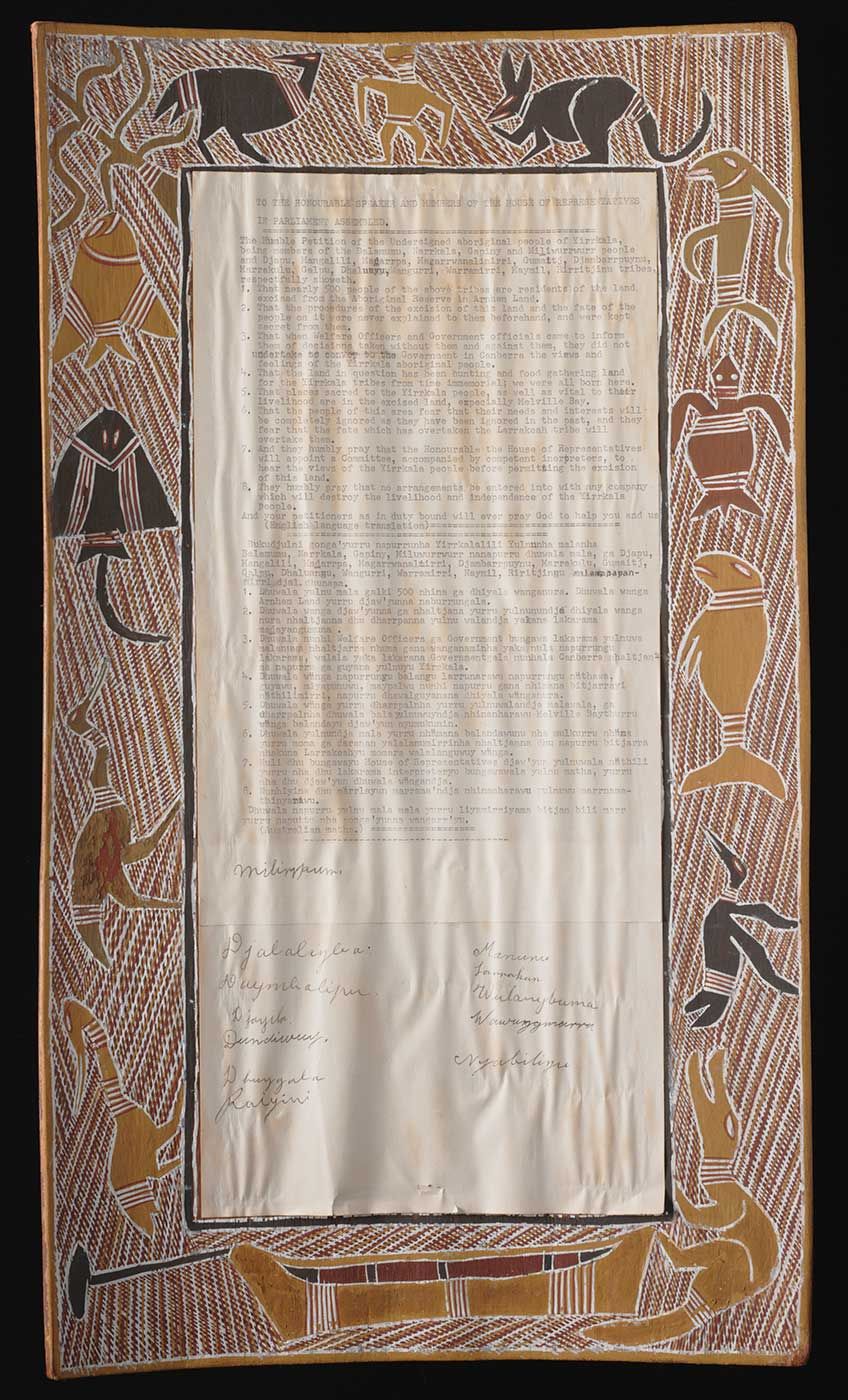 TO THE HONOURABLE SPEAKER AND MEMBERS OF THE HOUSE OF REPRESENTATIVES
IN PARLIAMENT ASSEMBLED.
The Humble Petition of the Undersigned aboriginal people of Yirrkala,
being members of the Balamumu, Narrkala, Gapiny and Miliwurrwurr people
and Djapu, Mangalili, Madarrpa, Magarrwanalinirri, Gumaitj, Djambarrpuynu,
Marrakulu, Galpu, Dhaluayu, Wangurri, Warramirri, Maymil, Rirritjinu tribes,
respectfully sheweth.
1. That nearly 500 people of the above tribes are residents of the land
excised from the Aboriginal Reserve in Arnhem Land.
2. That the procedures of the excision of this land and the fate of the
people on it were never explained to them beforehand, and were kept
secret from them.
3. That when Welfare Officers and Government officials came to inform
them of decisions taken without them and against them, they did not
undertake to convey to the Government in Canberra the views and
feelings of the Yirrkala aboriginal people.
4. That the land in question has been hunting and food gathering land
for the Yirrkala tribes from time immemorial; we were all born here.
5. That places sacred to the Yirrkala people, as well as vital to their
livelihood are in the excised land, especially Melville Bay.
6. That the people of this area fear that their needs and interests will
be completely ignored as they have been ignored in the past, and they
fear that the fate which has overtaken the Larrakeah tribe will
overtake them.
7. And they humbly pray that the Honourable the House of Representatives
will appoint a Committee, accompanied by competent interpreters, to
hear the views of the Yirrkala people before permitting the excision
of this land.
8. They humbly pray that no arrangements be entered into with any company
which will destroy the livelihood and independence of the Yirrkala
people.
And your petitioners as in duty bound will ever pray God to help you and us
(English language translation)
Bukudjulni gonga'yurru napurrunha Yirrkalalili Yulnunha malanha
Balamumu, Narrkala, Gapiny, Miliwurrwurr nanapurru dhuwala mala, ga Djapu,
Mangalili, Madarrpa, Magarrwanalmirri, Djambarrpuynu, Marrakulu, Gumaitj,
Galpu, Dhaluangu, Wangurri, Warramirri, Maymil, Riritjingu
djal dhunapa.
1. Dhuwala yulnu mala galki 500 nhina ga dhiyala wanganura. Dhuwala wanga
Arnhem Land yurru djaw'yunna naburrungala.
2. Dhuwala wanga djaw'yunna ga nhaltjana yurru yulnunundja dhiyala wanga
nura nhaltjanna dhu dharrpanna yulnu walandja yakana lakarama
3. Dhuwala nunhi Welfare Officers ga Government bungawa lakarama yulnuwa
malanuwa nhaltjarra nhuma gana wanganaminha yaka nula napurrungu
lakarama, walala yaka lakarama Governmentgala nunhala Canberra nhaltjanna
napurru ga guyana yulnuyu Yirrkala.
4. Dhuwala wanga napurrungu balangu larrunarawu napurrungu nathawa,
guyawu, miyapunuwu, maypalwu nunhi napurru gana nhinana bitjarrayi
nathilimirri, napurru dhawalguyanana dhiyala wanganura.
5. Dhuwala wanga yurru dharrpalnha yurru yulnuwalandja malawala, ga
dharrpalnha dhuwala bala yulnuwuyndja nhinanharawu Melville Baythurru
wanga balandayu djaw'yun nyumukunin.
6. Dhuwala yulnundja mala yurru nhamana balandawunu nha mulkurru nhama
yurru moma ga darangan yalalanumirrinha nhaltjanna dhu napurru bitjarra
nhakuna Larrakeahyu momara walalanguwuy wanga.
7. Nuli dhu bungawayu House of Representatives djaw'yun yulnuwala nathili
yurru nha dhu lakarama interpreteryu bungawawala yulnu matha, yurru
nha dhu djaw'yun dhuwala wangandja.
8. Nunhiyina dhu marrlayun marrama'ndja nhinanharawu yulnuwu marrnama-
thinyarawu.
Dhuwala napurru yulnu mala mala yurru liyamirriyama bitjan bili marr
yurru napurru nha gonga'yunna wangarr'yu.
(Australian matha.)
Milirrpum.
Djalalingba.
Manunu
Larrakan
Daymbalipu.
Wulanybuma
Djayila.
Wawunymarra
Dundiwuy.
Nyabilingu
Dhuygala
Raiyini